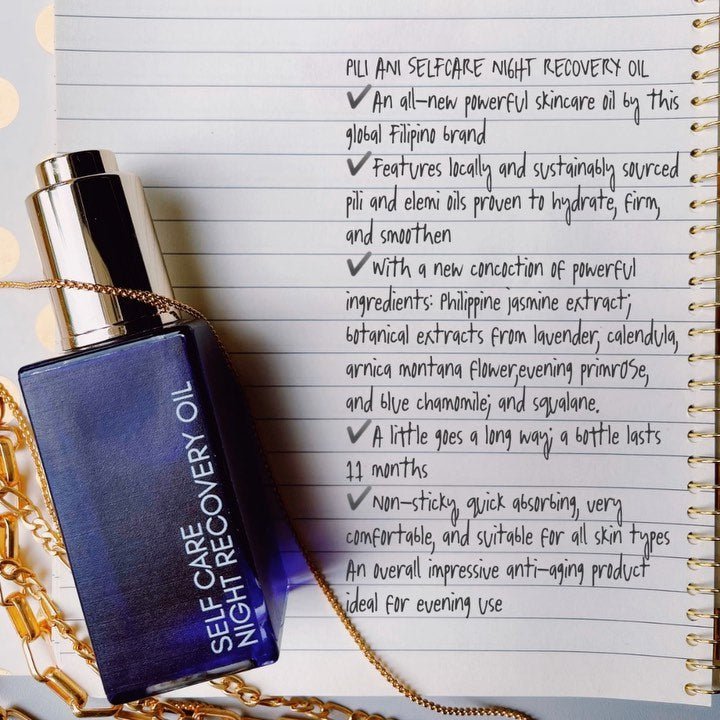 PILI ANI SELFCARE NIGHT RECOVERY OIL
✔An all-new powerful skincare oil by this
global Filipino brand
✔Features locally and sustainably sourced
pili and elemi oils proven to hydrate, firm,
and smoothen
✔With a new concoction of powerful
ingredients: Philippine jasmine extract;
botanical extracts from lavender, calendula,
arnica montana flower,evening primrose,
and blue chamomile; and squalane.
✔A little goes a long way; a bottle lasts
11 months
✔Non-sticky, quick absorbing, very
comfortable, and suitable for all skin types
An overall impressive anti-aging product
ideal for evening use
SELF CARE
NIGHT RECOVERY OIL